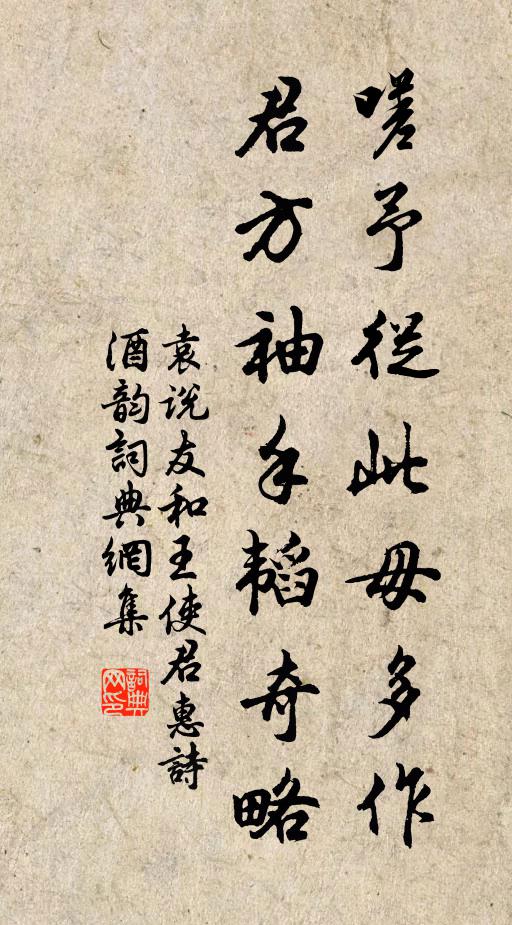 嗟予從此毋多作
君方袖手韬奇略
袁说友和王使君惠詩
酒韵詞典網集
詞典网印